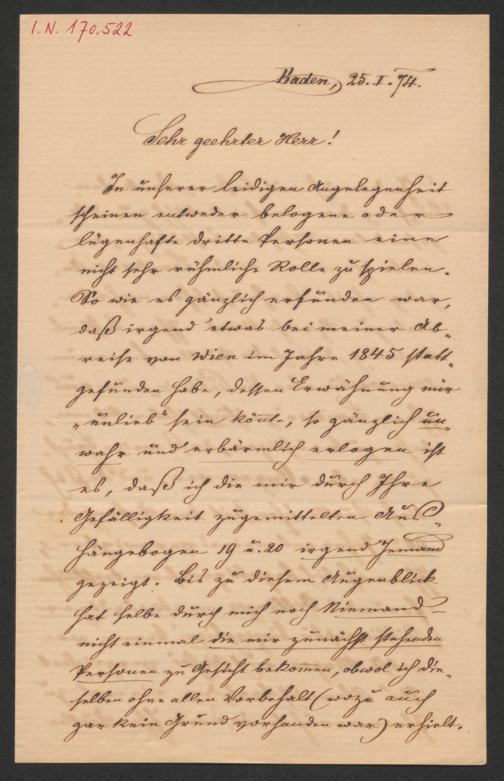 I.N. 170.522
Baden, 25. I. 74.
Sehr geehrter Herr!
In unserer leidigen Angelegenheit
scheinen entweder belogene oder
lügenhafte dritte Personen eine
nicht sehr rühmliche Rolle zu spielen.
So wie es gänzlich erfunden war,
daß irgend etwas bei meiner Ab-
reise von Wien im Jahre 1845 statt-
gefunden habe, dessen Erwähnung mir
„unlieb" sein könte, so gänzlich un-
wahr und erbärmlich erlogen ist
es, daß ich die mir durch Ihre
Gefälligkeit zugemittelten Aus-
hängebogen 19 u. 20 irgend Jemand
gezeigt. Bis zu diesem Augenblick
hat selbe durch mich noch Niemand
nicht einmal die mir zunächst stehenden
Personen zu Gesicht bekommen, obwol ich die-
selben ohne allen Vorbehalt (wozu auch
gar kein Grund vorhanden war) erhielt.